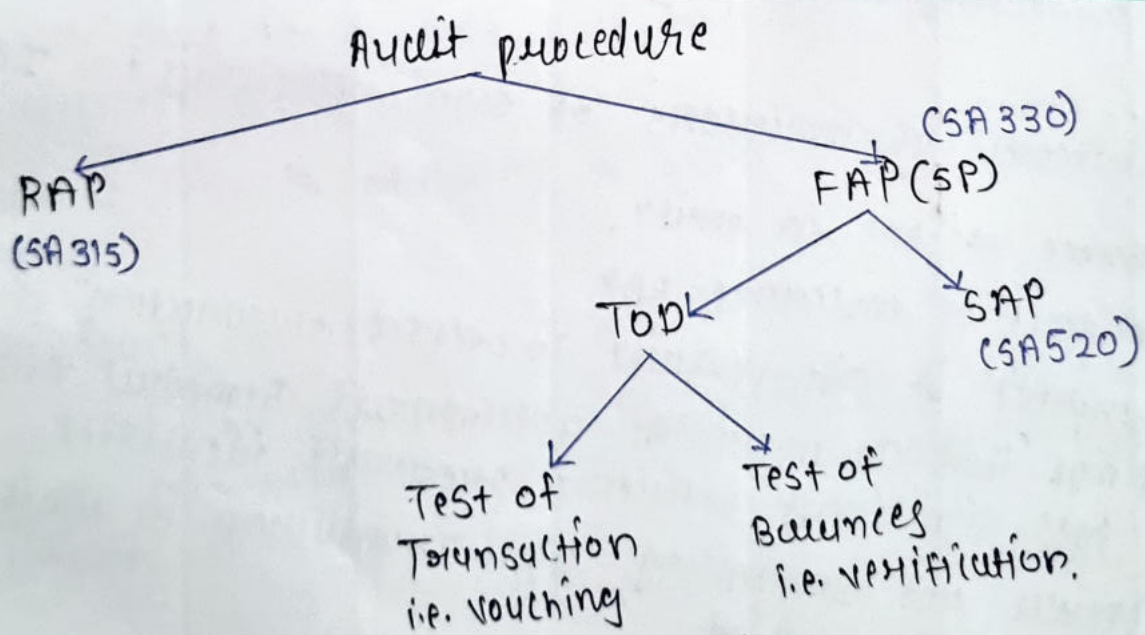 Audit procedure
(SA 330)
RAP
FAP (SP)
(SA 315)
TOD
SAP
(SA 520)
Test of
Transaction
i.e. vouching
Test of
Balances
i.e. verification.